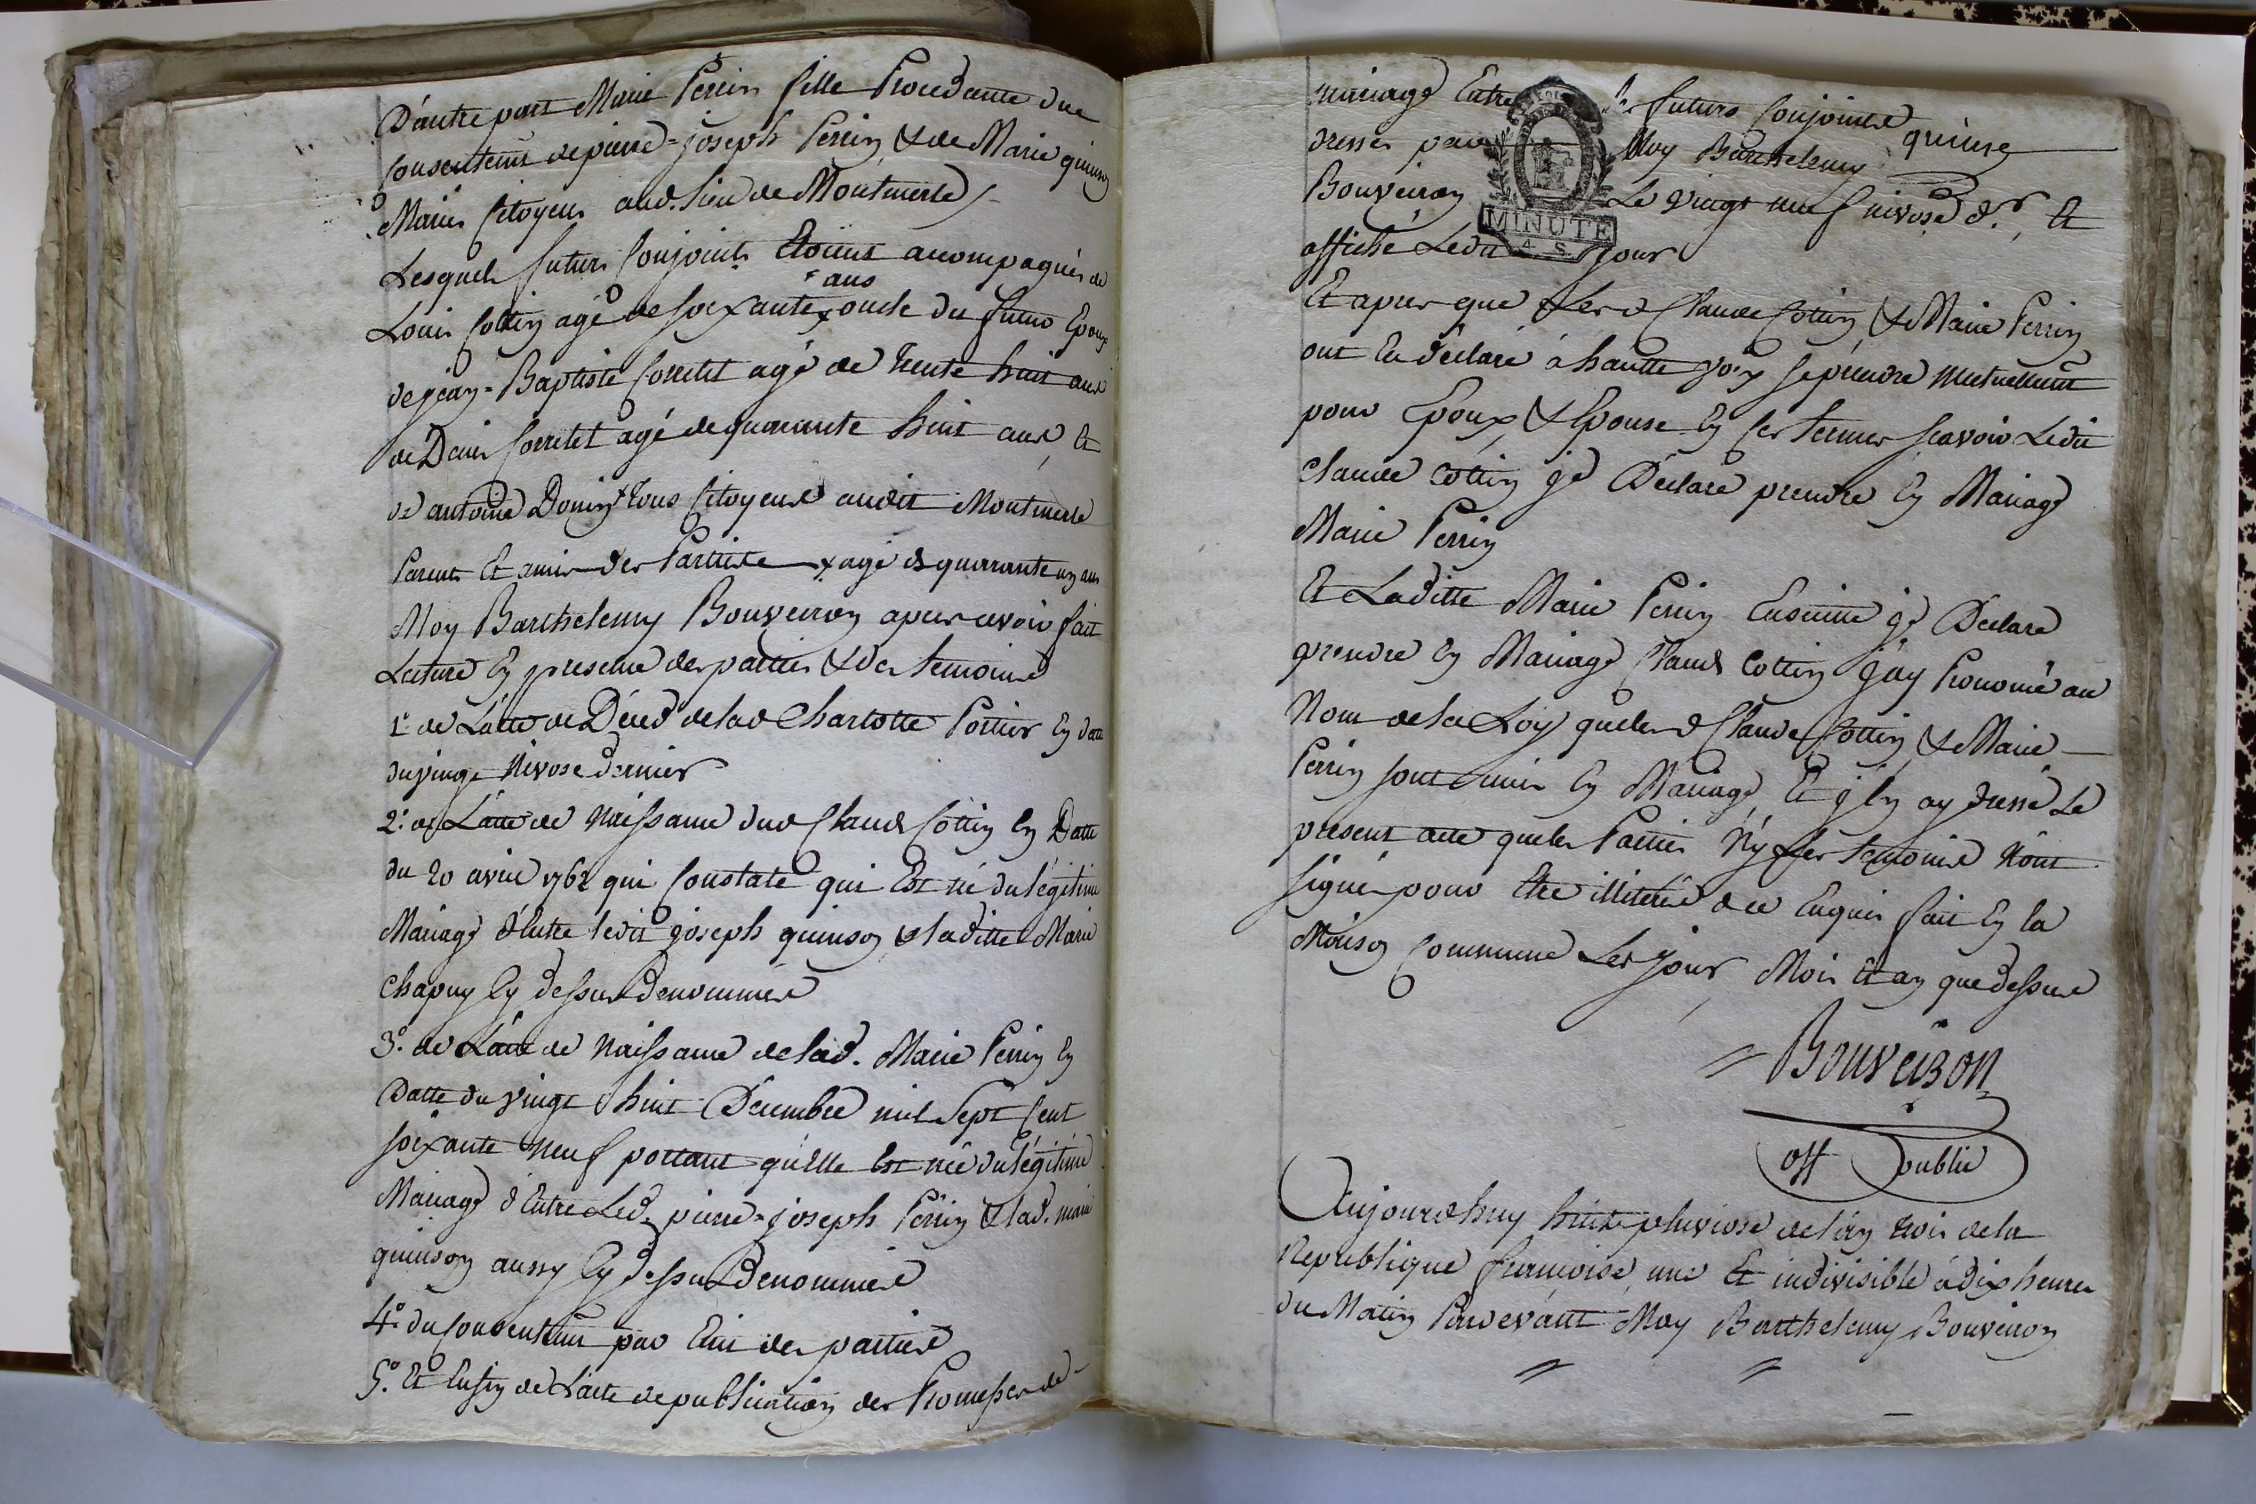 D'autre part Marie Perrin fille Procedante du
consentemt de pierre=joseph Perrin & de Marie quinson
Mariés Citoyens aud. lieu de Montmerle
Lesquels futurs Conjoints Etoient accompagnés de
ans
Louis Cottin agé de soixante x oncle du futur Epoux
de jean=Baptiste Corretet agé de trente huit ans
de Denis Corretet agé de quarante huit ans, et
de antoine Donin x tous Citoyens audit Montmerle
Parents Et amis des Parties x agé de quarante un ans
Moy Barthelemy Bouveiron apres avoir fait
Lecture En presence des parties & des temoins
1° de L'acte de Décès de lad Charlotte Portier En date
du vingt Nivose dernier
2° de L'acte de Naissance dud Claude Cottin En Datte
du 20 avril 1762 qui Constate qui Est né du légitime
Mariage d'Entre ledit joseph quinson & laditte Marie
Chapuy Cy dessus Denommés
3° de L'acte de Naissance de lad. Marie Perrin En
Datte du vingt huit Décembre mil Sept Cent
soixante neuf portant qu'Elle Est née du légitime
Mariage d'Entre Led. pierre=joseph Perrin & lad. marie
quinson aussy Cy dessus Denommés
4° du Consentemt par Ecrit des parties
5° Et Enfin de L'acte de publication des Promesses de
mariage Entre les futurs Conjoints
quinse
dressés par Moy Barthelemy
Bouveiron Le vingt neuf nivose d.r, Et
MINUTE
4. S.
affiché Ledit jour
Et apres que Lesd Claude Cottin & Marie Perrin
ont Eu déclaré à hautte voix se prendre mutuellement
pour Epoux & Epouse En ces termes scavoir Ledit
Claude Cottin je Déclare prendre En Mariage
Marie Perrin
Et Laditte Marie Perrin Ensuitte je Déclare
prendre En Mariage Claude Cottin j'ay Prononcé au
Nom de la Loy que lesd Claude Cottin & Marie
Perrin sont unis En Mariage, Et j'En ay dressé Le
present acte que les Parties Ny les temoins N'ont
signés pour Etre illiterés de ce Enquis fait En la
Maison Commune Les jour, Mois Et an que dessus
Bouveiron
off public
Aujourdhuy huit pluviose de l'an trois de la
Republique francoise, une Et indivisible à dix heures
du Matin Pardevant Moy Barthelemy Bouveiron